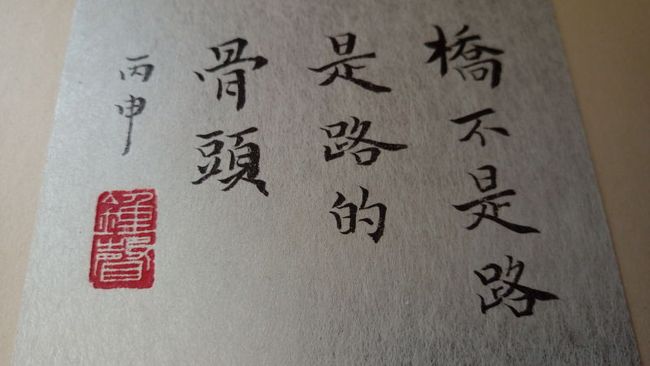 橋不是路
是路的
骨頭
丙申
鍾馨